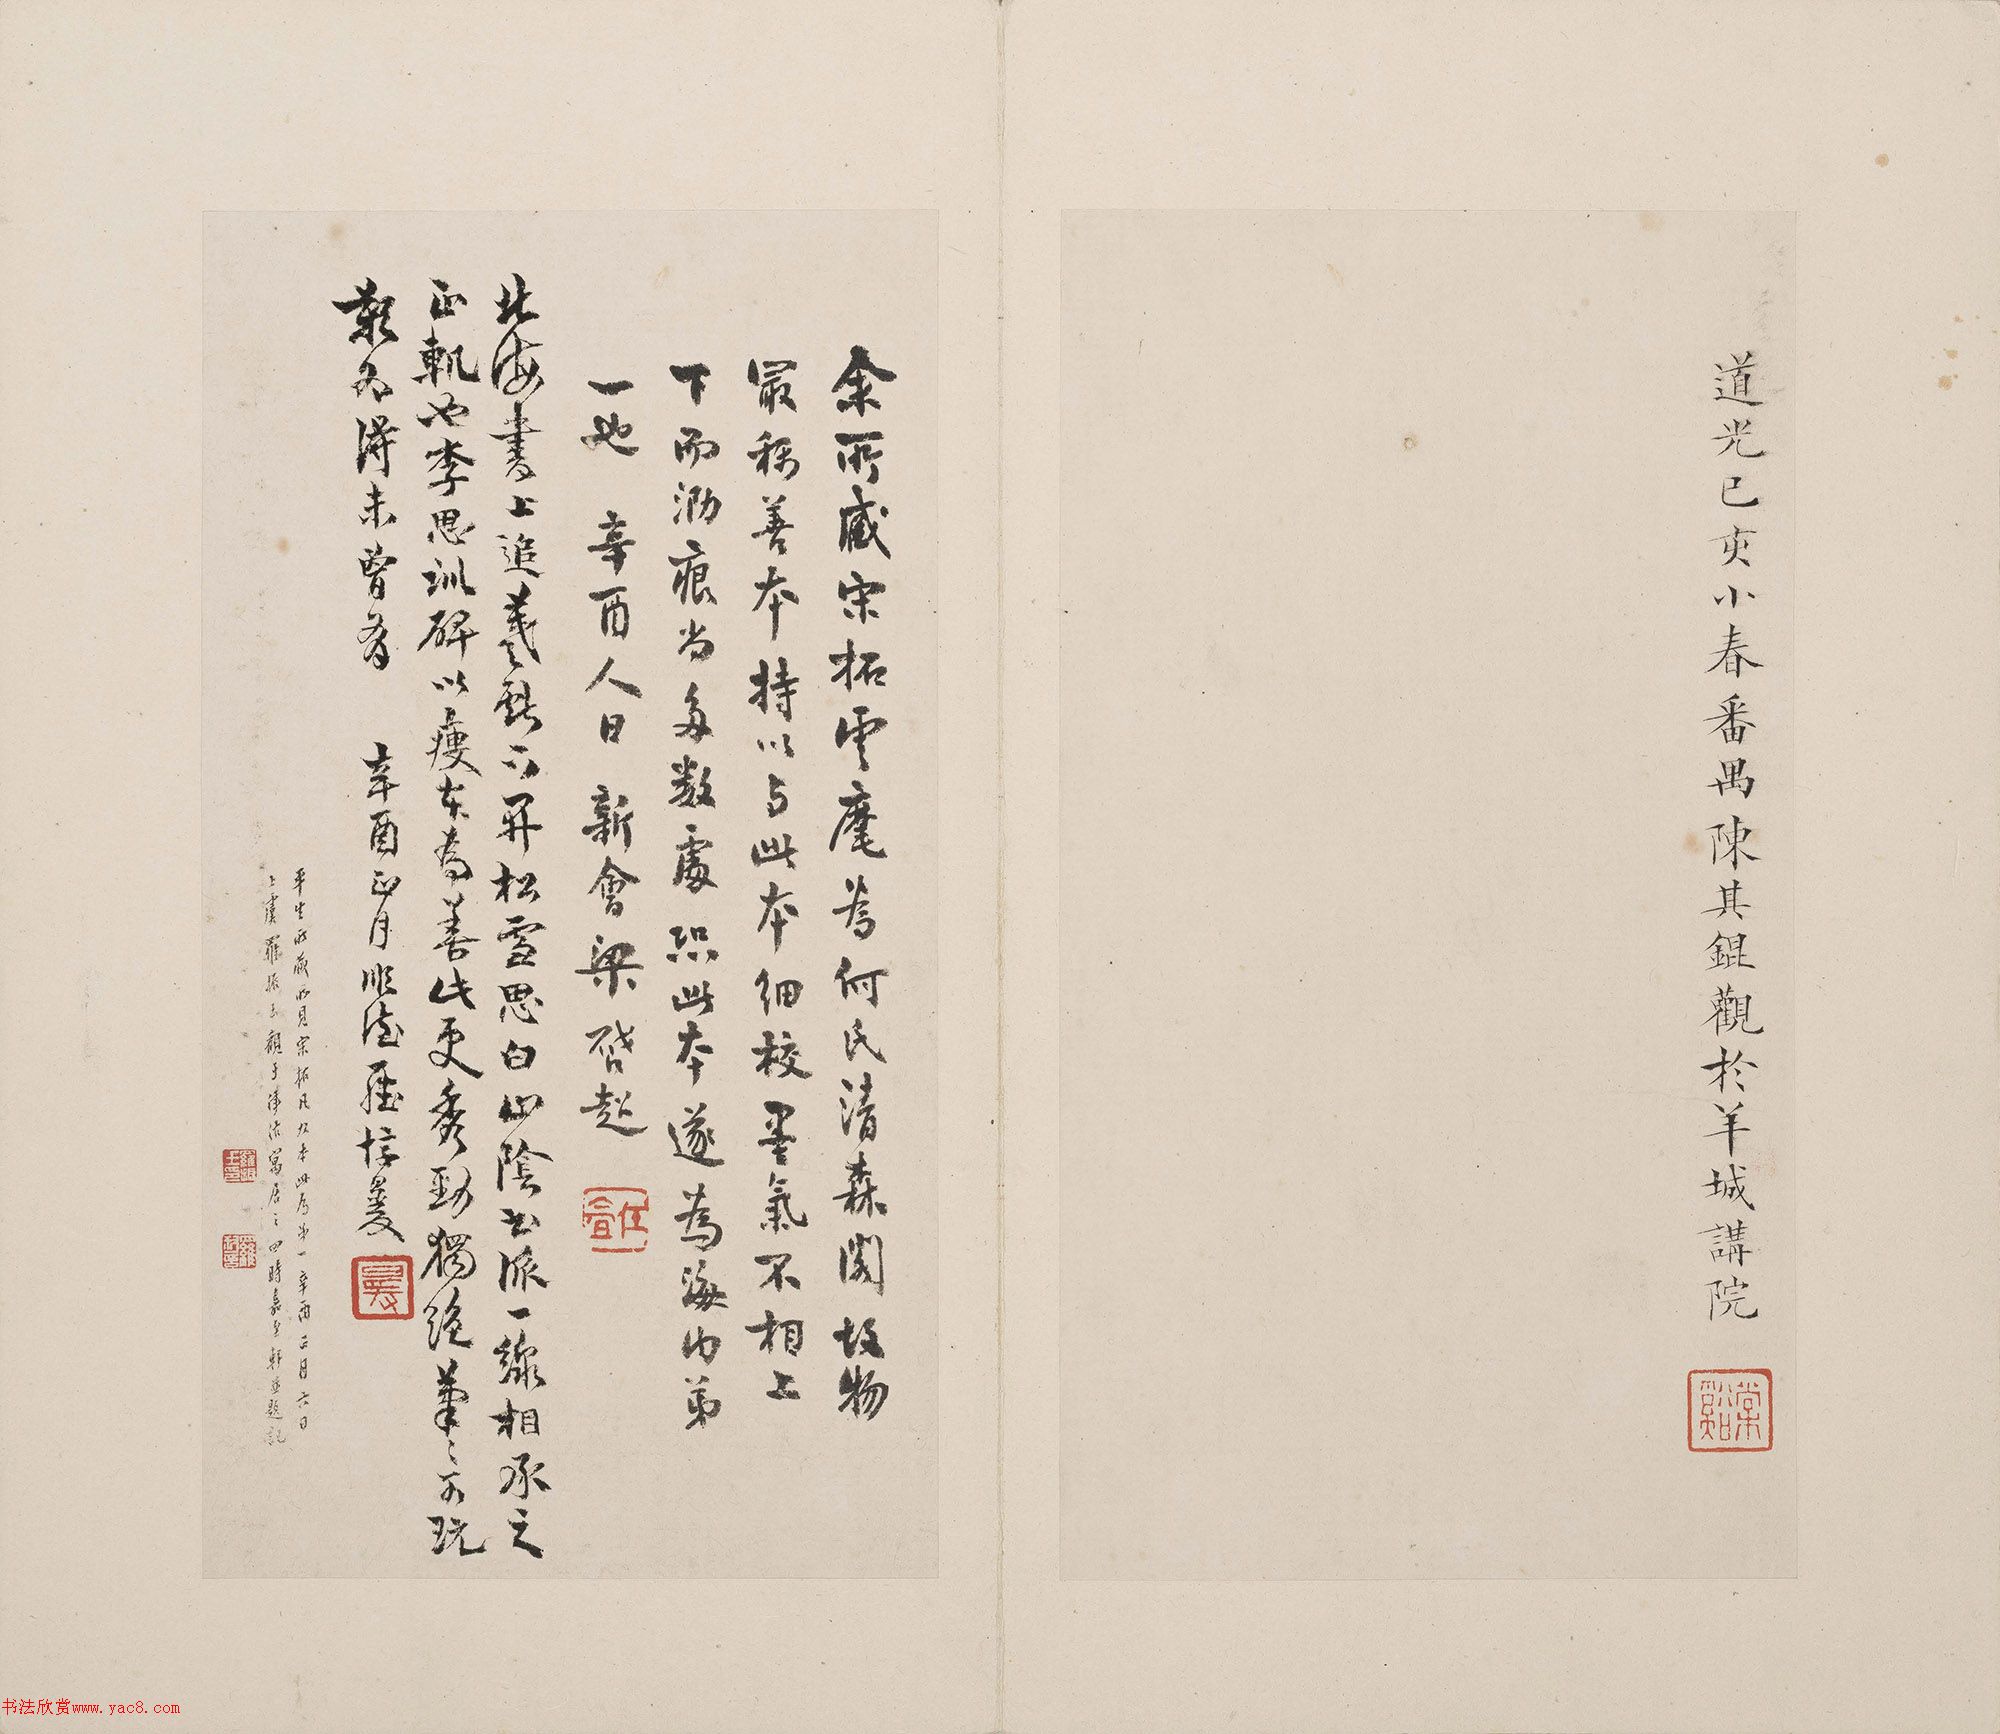 道光己亥小春番禺陳其錕觀於羊城講院
棠谿
余所藏宋拓雲麾為何氏清森閣故物
最稱善本持以与此本細校墨氣不相上
下而泐痕尚多数處然此本遂為海内弟
一也 辛酉人日新會梁啓超
北海書上追羲獻下開松雪思白山陰書派一線相承之
正軌也李思訓碑以瘦本為善此更秀勁獨絕筆筆可玩
歎為得未曾有 辛酉正月順德羅惇㬊
平生所藏所見宋拓凡九本此為第一辛酉正月六日
上虞羅振玉觀于津沽寓居之四時嘉至軒並題記
书法欣赏www.yac8.com